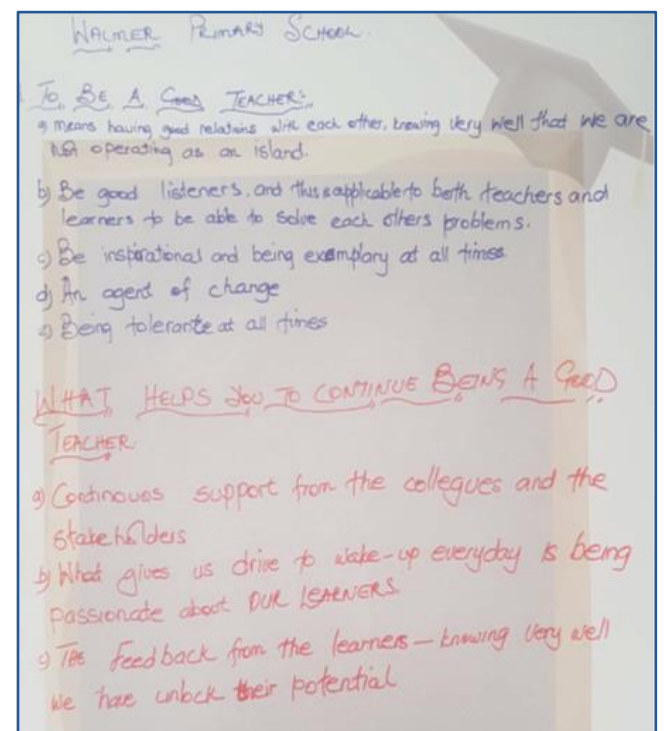 WALMER PRIMARY SCHOOL.
TO BE A GOOD TEACHER:
a) means having good relations with each other, knowing very well that we are
not operating as an island.
b) Be good listeners, and this is applicable to both teachers and
learners to be able to solve each others problems.
c) Be inspirational and being examplary at all times
d) An agent of change
e) Being tolerante at all times
WHAT HELPS YOU TO CONTINUE BEING A GOOD
TEACHER
a) Continoues support from the collegues and the
stakeholders
b) What gives us drive to wake-up everyday is being
passionate about OUR LEARNERS
c) The feedback from the learners – knowing very well
we have unlock their potential